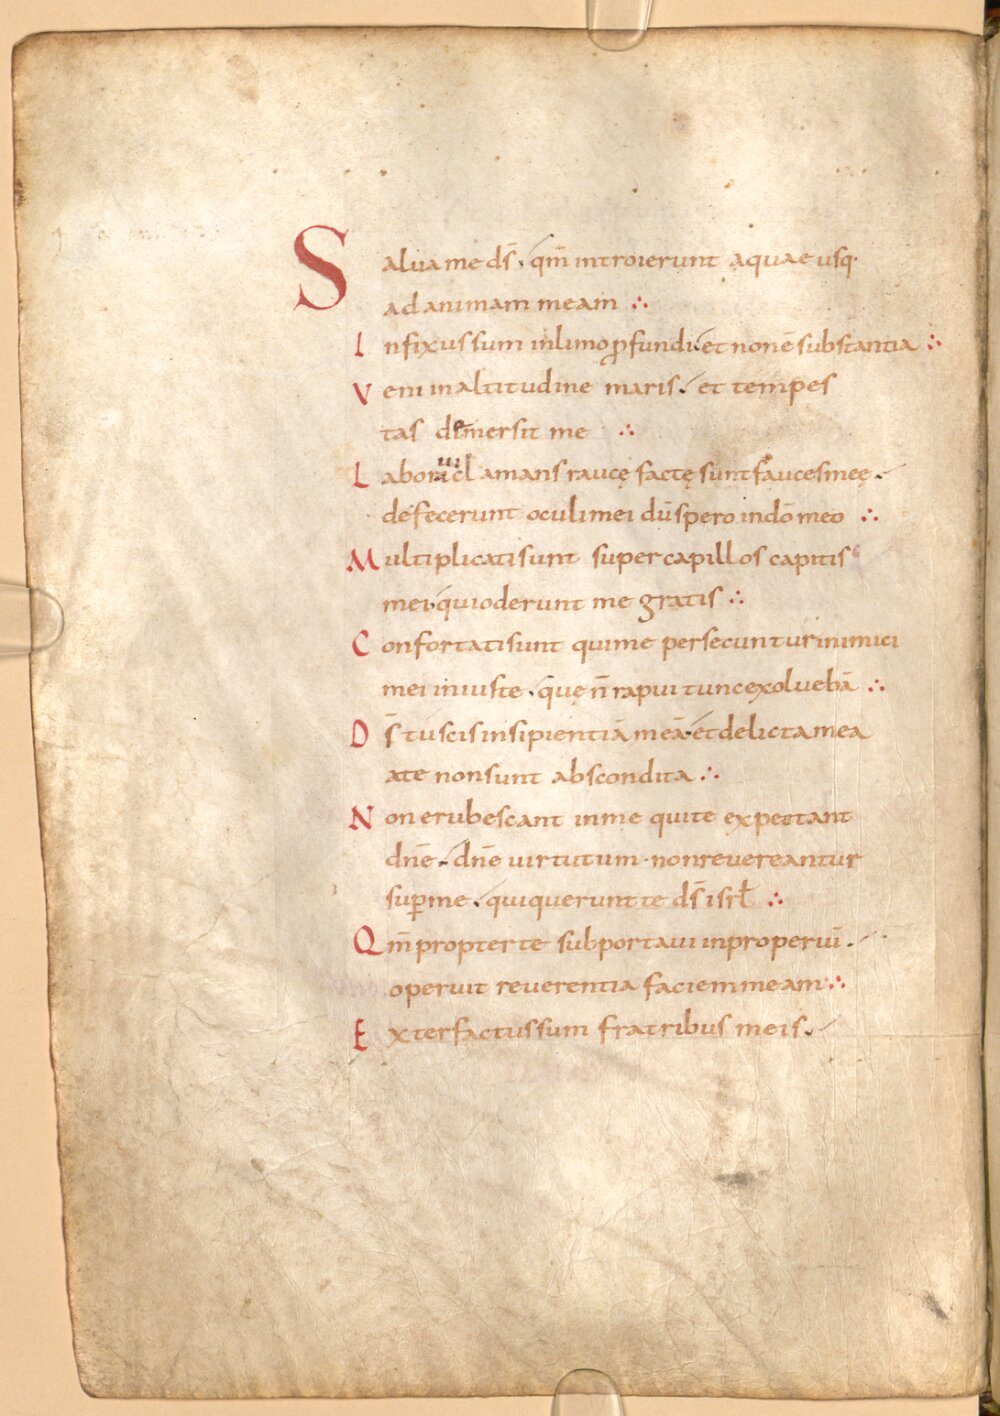 Salua me ds̄. qm̄ introierunt aquae usq·
ad animam meam ∴
Infixus sum in limo ꝓfundi. et non ē substantia ∴
Veni in altitudine maris. et tempes
tas demersit me ∴
Laboraui clamans raucę factę sunt fauces meę.
defecerunt oculi mei dū spero in dō meo ∴
Multiplicati sunt super capillos capitis
mei. qui oderunt me gratis ∴
Confortati sunt qui me persecuntur inimici
mei iniuste. quę n̄ rapui tunc exoluebā ∴
Ds̄ tu scis insipientiā meā. et delicta mea
a te non sunt abscondita ∴
Non erubescant in me qui te expectant
dnē. dnē uirtutum. non reuereantur
suꝑ me. qui querunt te ds̄ isrł ∴
Qm̄ propter te subportaui inproperiū.
operuit reuerentia faciem meam ∴
Exter factus sum fratribus meis.